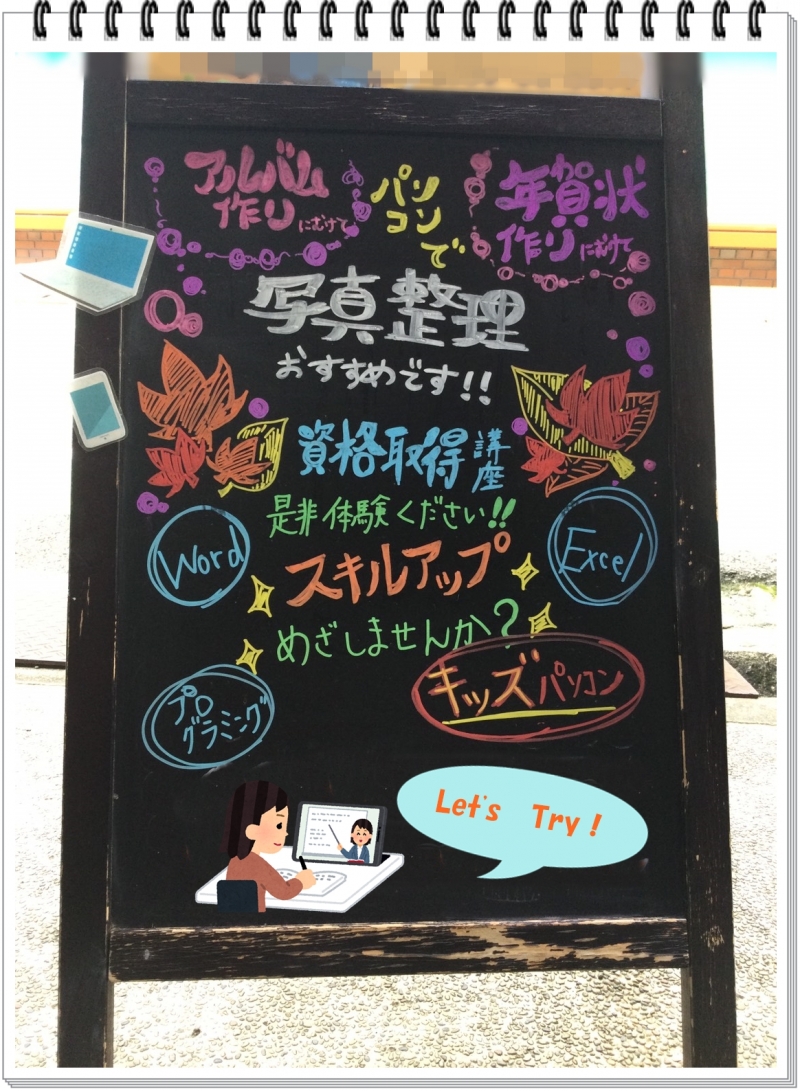 アルバム
作りにむけて
パソ
コン
で
年賀状
作りにむけて
写真整理
おすすめです!!
資格取得講座
是非体験ください!!
Word
Excel
スキルアップ
めざしませんか?
キッズパソコン
プロ
グラミング
Let's Try!